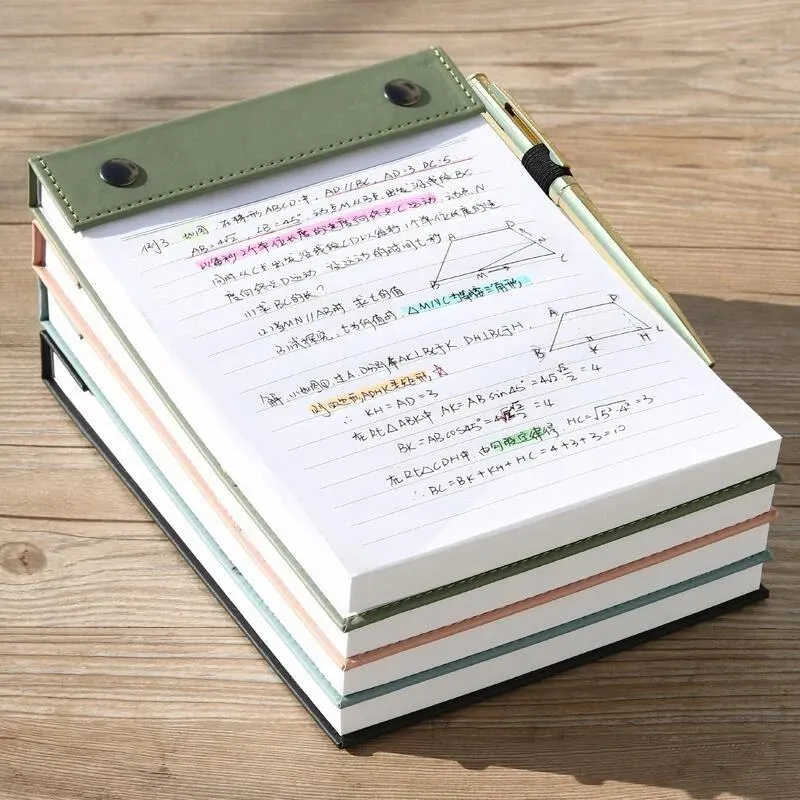 例3 如图,在梯形ABCD中,AD//BC,AD=3 DC=5
AB=4√2 ∠B=45°,动点M从B点出发沿线段BC
以每秒2个单位长度的速度向终点C运动,动点N
同时从C点出发沿线段CD以每秒1个单位长度的速
度向终点D运动 设运动的时间t秒
(1)求BC的长?
(2)当MN//AB时,求t的值
(3)试探究,t为何值时,△MNC为等腰三角形
A D N C M B
A D B K H C
解:(1)如图①,过A、D分别作AK⊥BC于K DH⊥BC于H,
则四边形ADHK是矩形
∴ KH=AD=3
在Rt△ABK中 AK=ABsin45°=4√2·√2/2=4
BK=ABcos45°=4√2·√2/2=4
在Rt△CDH中,由勾股定理得,HC=√5²-4²=3
∴BC=BK+KH+HC=4+3+3=10